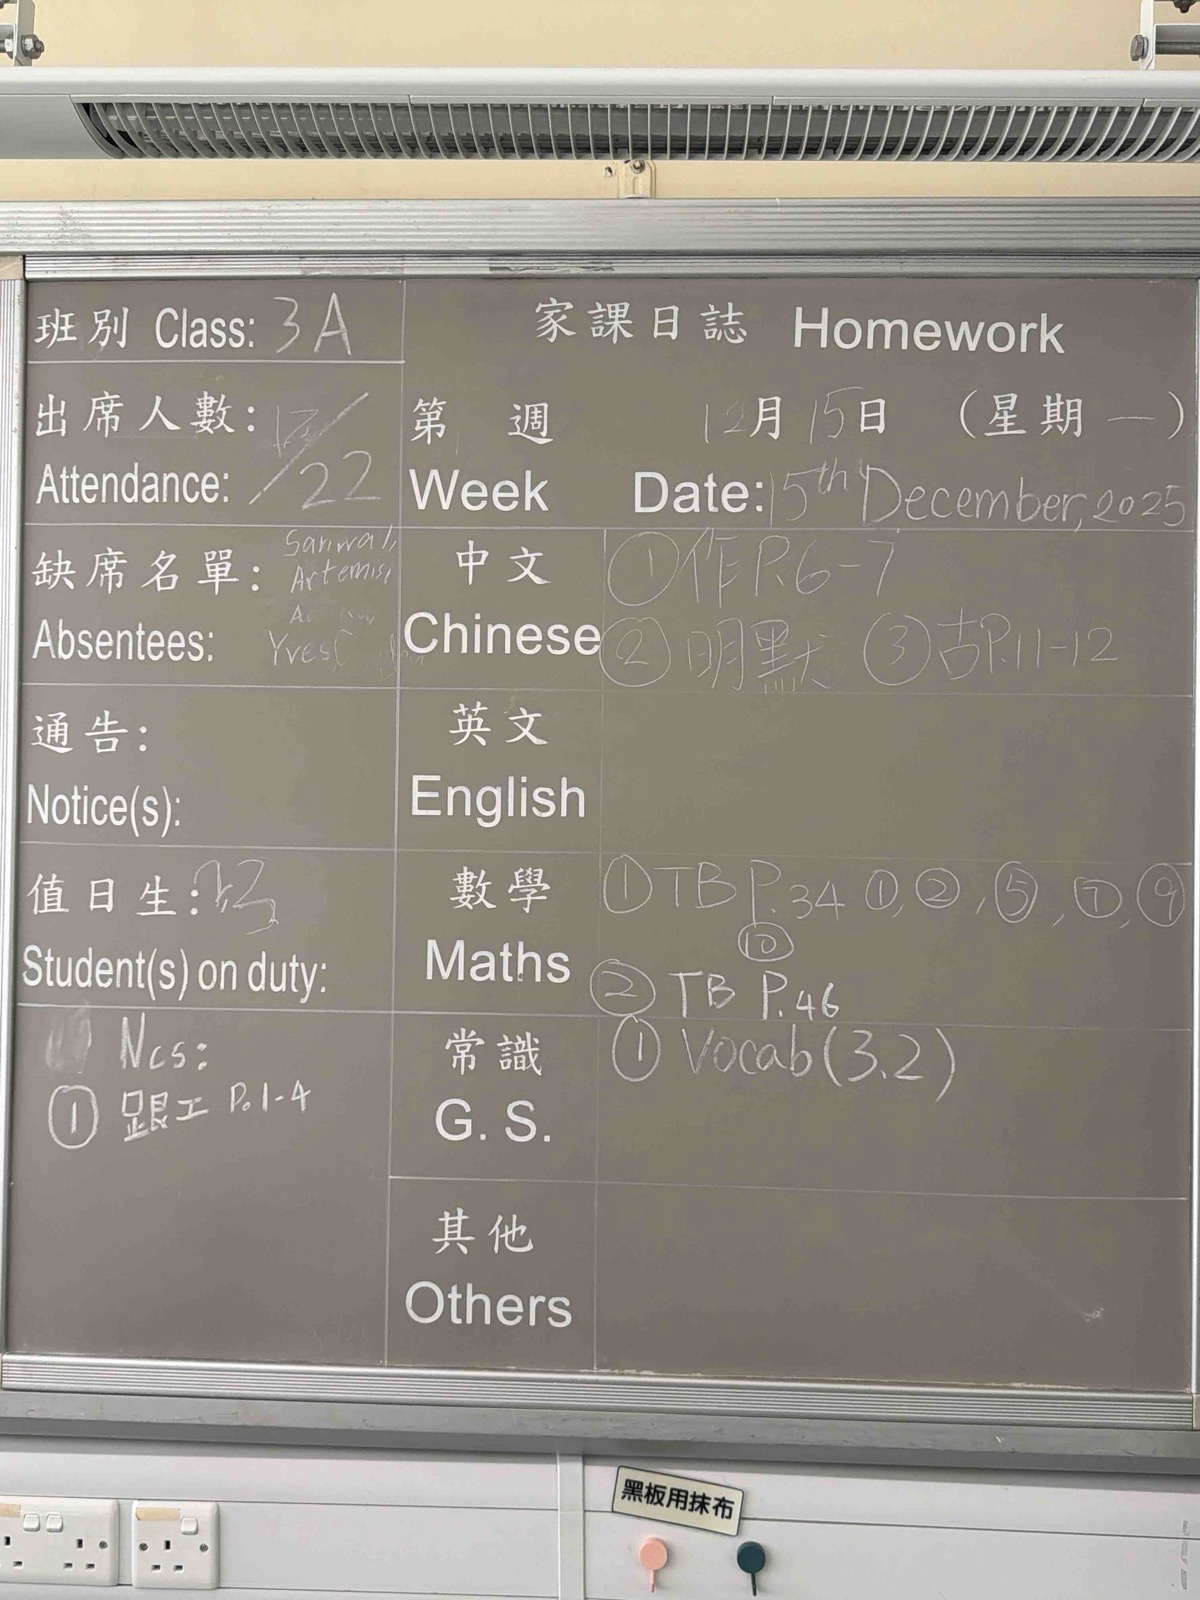 班別 Class: 3A
家課日誌 Homework
出席人數: 17/22
Attendance:
第 週 12月15日 (星期一)
Week Date: 15th December, 2025
缺席名單:
Absentees: Yves
中文 ①作P.6-7
Chinese ②明默 ③古P.11-12
通告:
Notice(s):
英文
English
值日生:
Student(s) on duty:
數學 ①TB P.34 ①,②,⑤,⑦,⑨
⑩
Maths ② TB P.46
Ncs:
① 跟工 P.1-4
常識 ① Vocab(3.2)
G. S.
其他
Others
黑板用抹布